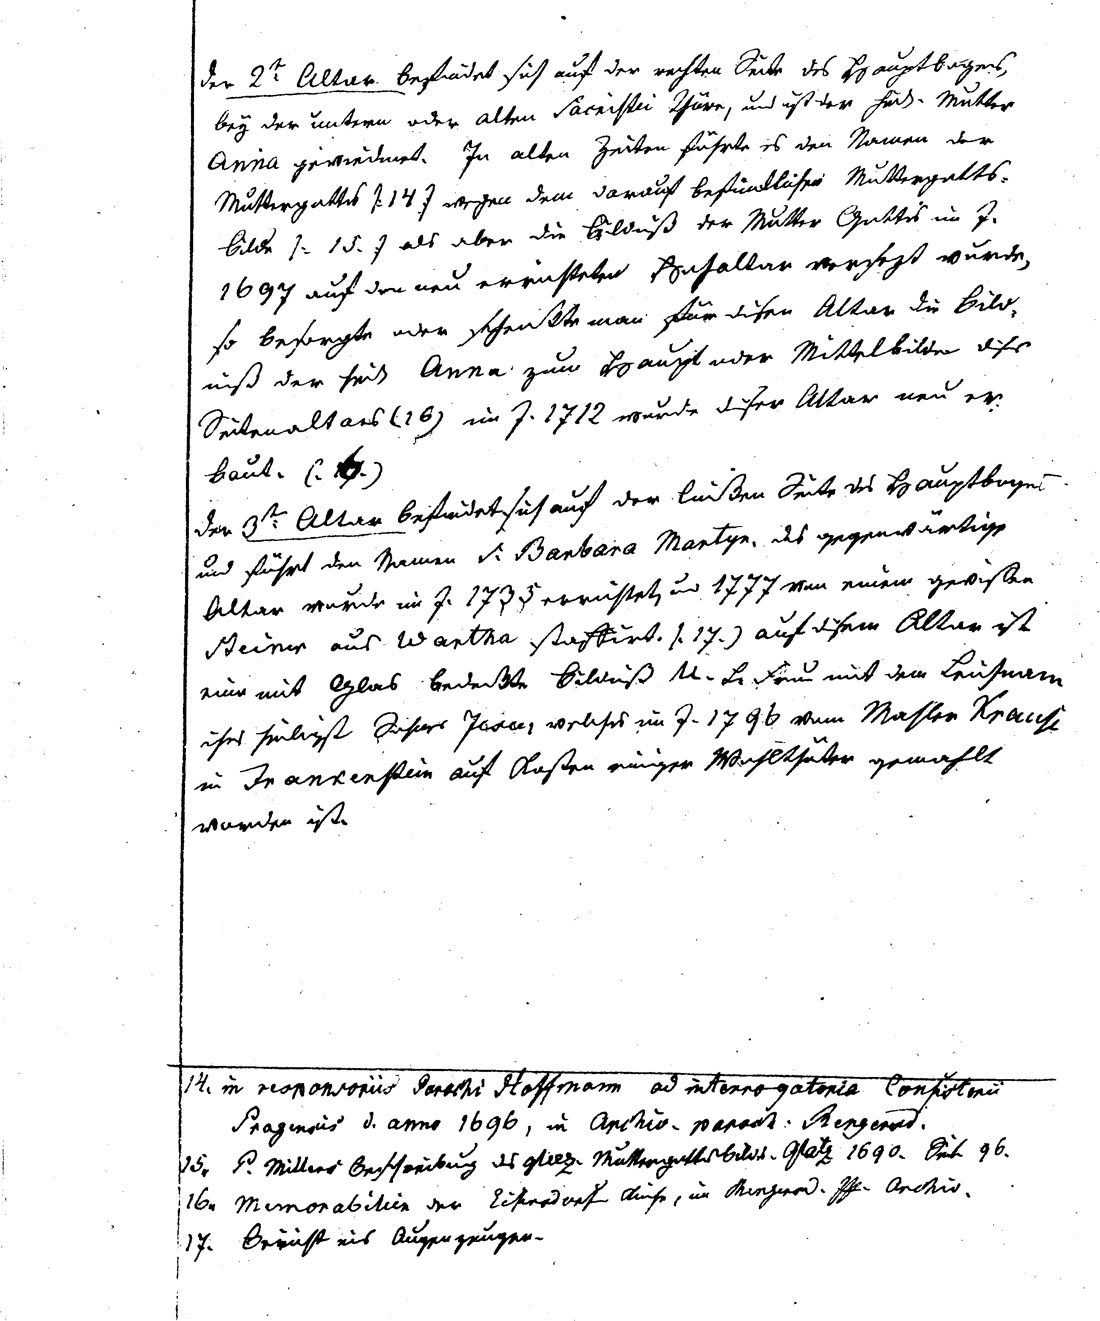 der 2te Altar befindet sich auf der rechten Seite des Hauptbogens,
bey der untern oder alten Sacristei Thüre, und ist der heil. Mutter
Anna gewiedmet. In alten Zeiten führte es den Namen der
Muttergottes /:14:/ wegen dem darauf befindlichen Muttergottes-
bilde /: 15. :/ als aber die Bildniß der Mutter Gottes im J.
1697 auf den neu errichteten Hochaltar versezt wurde,
so besorgte oder schenkte man für disen Altar die Bild-
niß der heil. Anna zum Haupt oder Mittelbilde dises
Seitenaltars (16) im J. 1712 wurde diser Altar neu er-
baut. (: :)
der 3te Altar befindet sich auf der linken Seite des Hauptbogens
und führt den Namen S. Barbara Martyr. das gegenwärtige
Altar wurde im J. 1735 errichtet, und 1777 von einem gewissen
aus Wartha staffirt. /: 17. :) auf disem Altar ist
eine mit Glas bedeckte Bildniß U. L. Frau mit dem Leichnam
ihres heiligst Sohnes Jesu, welches im J. 1796 vom Mahler Krause
in Frankenstein auf Kosten einiger Wohlthäter gemahlt
worden ist.
14. in responsoriis Parochi Hoffmann ad interrogatoria Consistorii
Pragensis d. anno 1696, in Archiv. paroch. Rengersd.
15. P. Millers Beschreibung des glatz. Muttergottesbilds. Glatz 1690. Seit 96.
16. Memorabilien der Eisersdorf Kirche, im Rengersd. Pf. Archiv.
17. Bericht eines Augenzeugen.